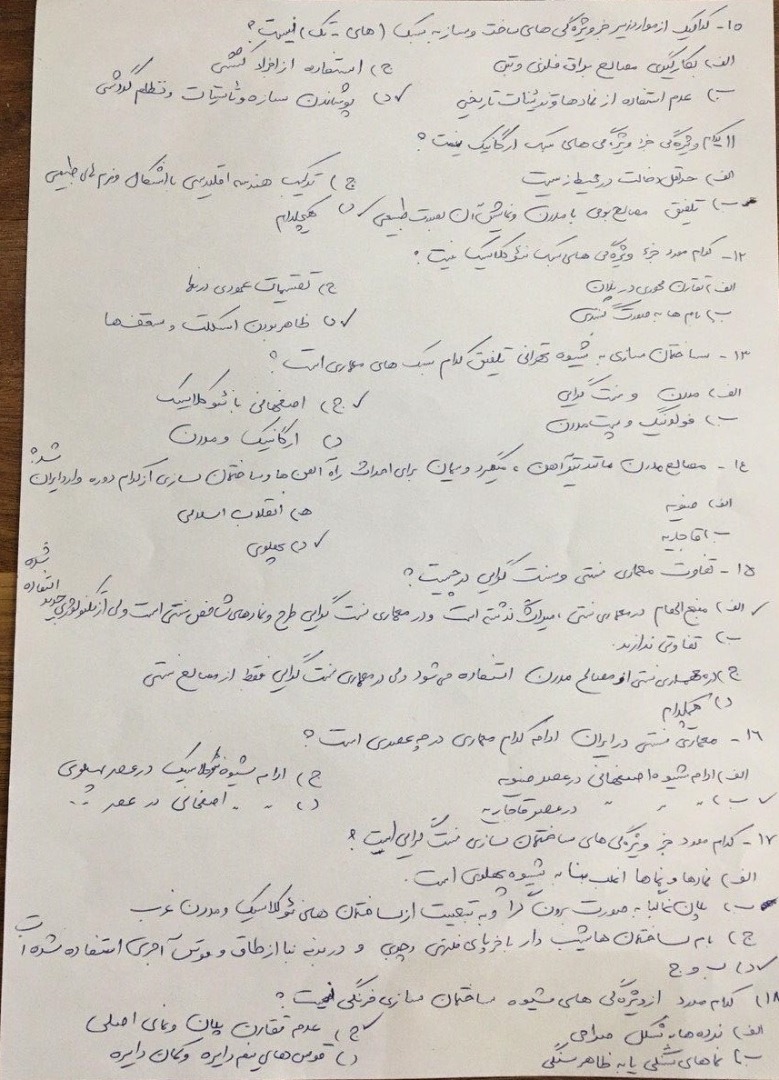 ۱۵- کدامیک از موارد زیر جزء ویژگی های ساخت و ساز به سبک (های - تک) نیست؟
الف) بکارگیری مصالح براق فلزی و بتن ج) استفاده از افراد
ب) عدم استفاده از نمادها و تزئینات تاریخی د) پوشاندن سازه و تاسیسات و نظام گردشی
۱۱ کدام ویژگی جزء ویژگی های سبک ارگانیک نیست؟
الف) حداقل دخالت در محیط زیست ج) ترکیب هندسه اقلیدسی با اشکال و فرم های طبیعی
ب) تلفیق مصالح بومی با مدرن و نمایش آن بصورت طبیعی د) هیچکدام
۱۲- کدام مورد جزء ویژگی های سبک نئوکلاسیک نیست؟
الف) تقارن محوری در پلان ج) تقسیمات عمودی در نما
ب) بام ها به صورت گنبدی د) ظاهر بودن اسکلت و سقف ها
۱۳- ساختمان سازی به شیوه تهرانی تلفیق کدام سبک های معماری است؟
الف) مدرن و سنت گرایی ج) اصفهانی با نئوکلاسیک
ب) فولدینگ و پست مدرن د) ارگانیک و مدرن
۱٤- مصالح مدرن مانند تیرآهن ، میلگرد و سیمان برای احداث راه آهن ها و ساختمان سازی از کدام دوره وارد ایران شد؟
الف) صفویه ج) انقلاب اسلامی
ب) قاجاریه د) پهلوی
۱۵- تفاوت معماری سنتی و سنت گرایی در چیست؟
الف) منبع الهام در معماری سنتی ، میراث گذشته است و در معماری سنت گرایی طرح و نمادهای شاخص سنتی است ولی از تکنولوژی جدید استفاده شده
ب) تفاوتی ندارند.
ج) در معماری سنتی از مصالح مدرن استفاده می شود ولی در معماری سنت گرایی فقط از مصالح سنتی
د) هیچکدام
۱۶- معماری سنتی در ایران ادامه کدام معماری در چه عصری است؟
الف) ادامه شیوه اصفهانی در عصر صفویه ج) ادامه شیوه نئوکلاسیک در عصر پهلوی
ب) " " " در عصر قاجاریه د) " " اصفهانی در عصر "
۱۷- کدام مورد جزء ویژگی های ساختمان سازی سنت گرایی است؟
الف) نمادها و نماها اغلب بنا به شیوه پهلوی است.
ب) پلان غالبا به صورت برون گرا و به تبعیت از ساختمان های نئوکلاسیک و مدرن غرب
ج) بام ساختمان ها شیب دار با خرپای فلزی و چوبی و در بدنه نما از طاق و قوس آجری استفاده شده است
د) ب و ج
۱۸) کدام مورد از ویژگی های شیوه ساختمان سازی فرنگی نیست؟
الف) نرده ها به شکل صراحی ج) عدم تقارن پلان و نمای اصلی
ب) نماهای سنگی یا به ظاهر سنگی د) قوس های نیم دایره و کمان دایره